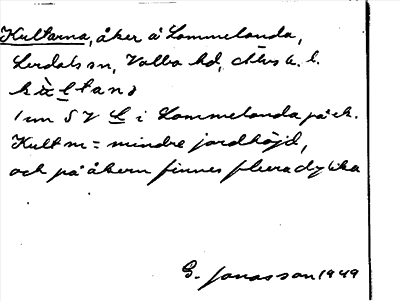 Kultarna, åker å Lommelanda,
Lerdals sn, Valbo hd, Älvsb. l.
kùltanɐ
1 um SV L i Lommelanda på ek.
Kult m = mindre jordhöjd,
och på åkern finnes flera dylika
G. Jonasson 1949